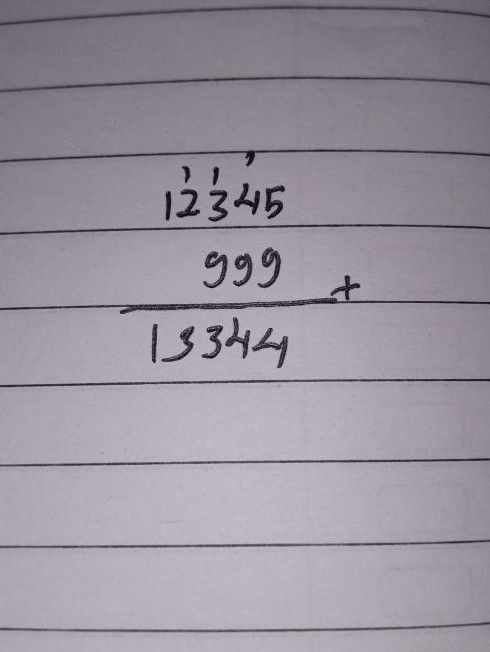 1 1 1
12345
999
+
13344